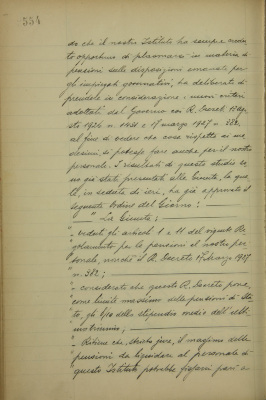 554
do che il nostro Istituto ha sempre
to opportuno di plasmarsi in materia di
pensioni sulle disposizioni emanate per
gli impiegati governativi, ha deliberato di
prendere in considerazione i nuovi criteri
adottati dal Governo con R. Decreti
sto 1926 n. e 17 marzo 1927 n. 382,
al fine di vedere che cosa rispetto ai me
desimi si potesse fare anche per il nostro
personale. I risultati di questo studio so
no già stati presentati alla Giunta, la qua
le, in seduta di ieri, ha già approvato il
seguente Ordine del Giorno:
"La Giunta;
"- veduti gli articoli 1 e 11 del vigente Re
"golamento per le pensioni al nostro per
"sonale, nonché il R. Decreto 17 marzo 1927
"n. 382;
"- considerato che questo R. Decreto pone,
"come limite massimo delle pensioni di Sta
"to, gli 8/10 dello stipendio medio dell'ul
"timo
"- Ritiene che, stricto jure, il massimo delle
"pensioni da liquidare al personale di
"questo Istituto potrebbe fissarsi pari a